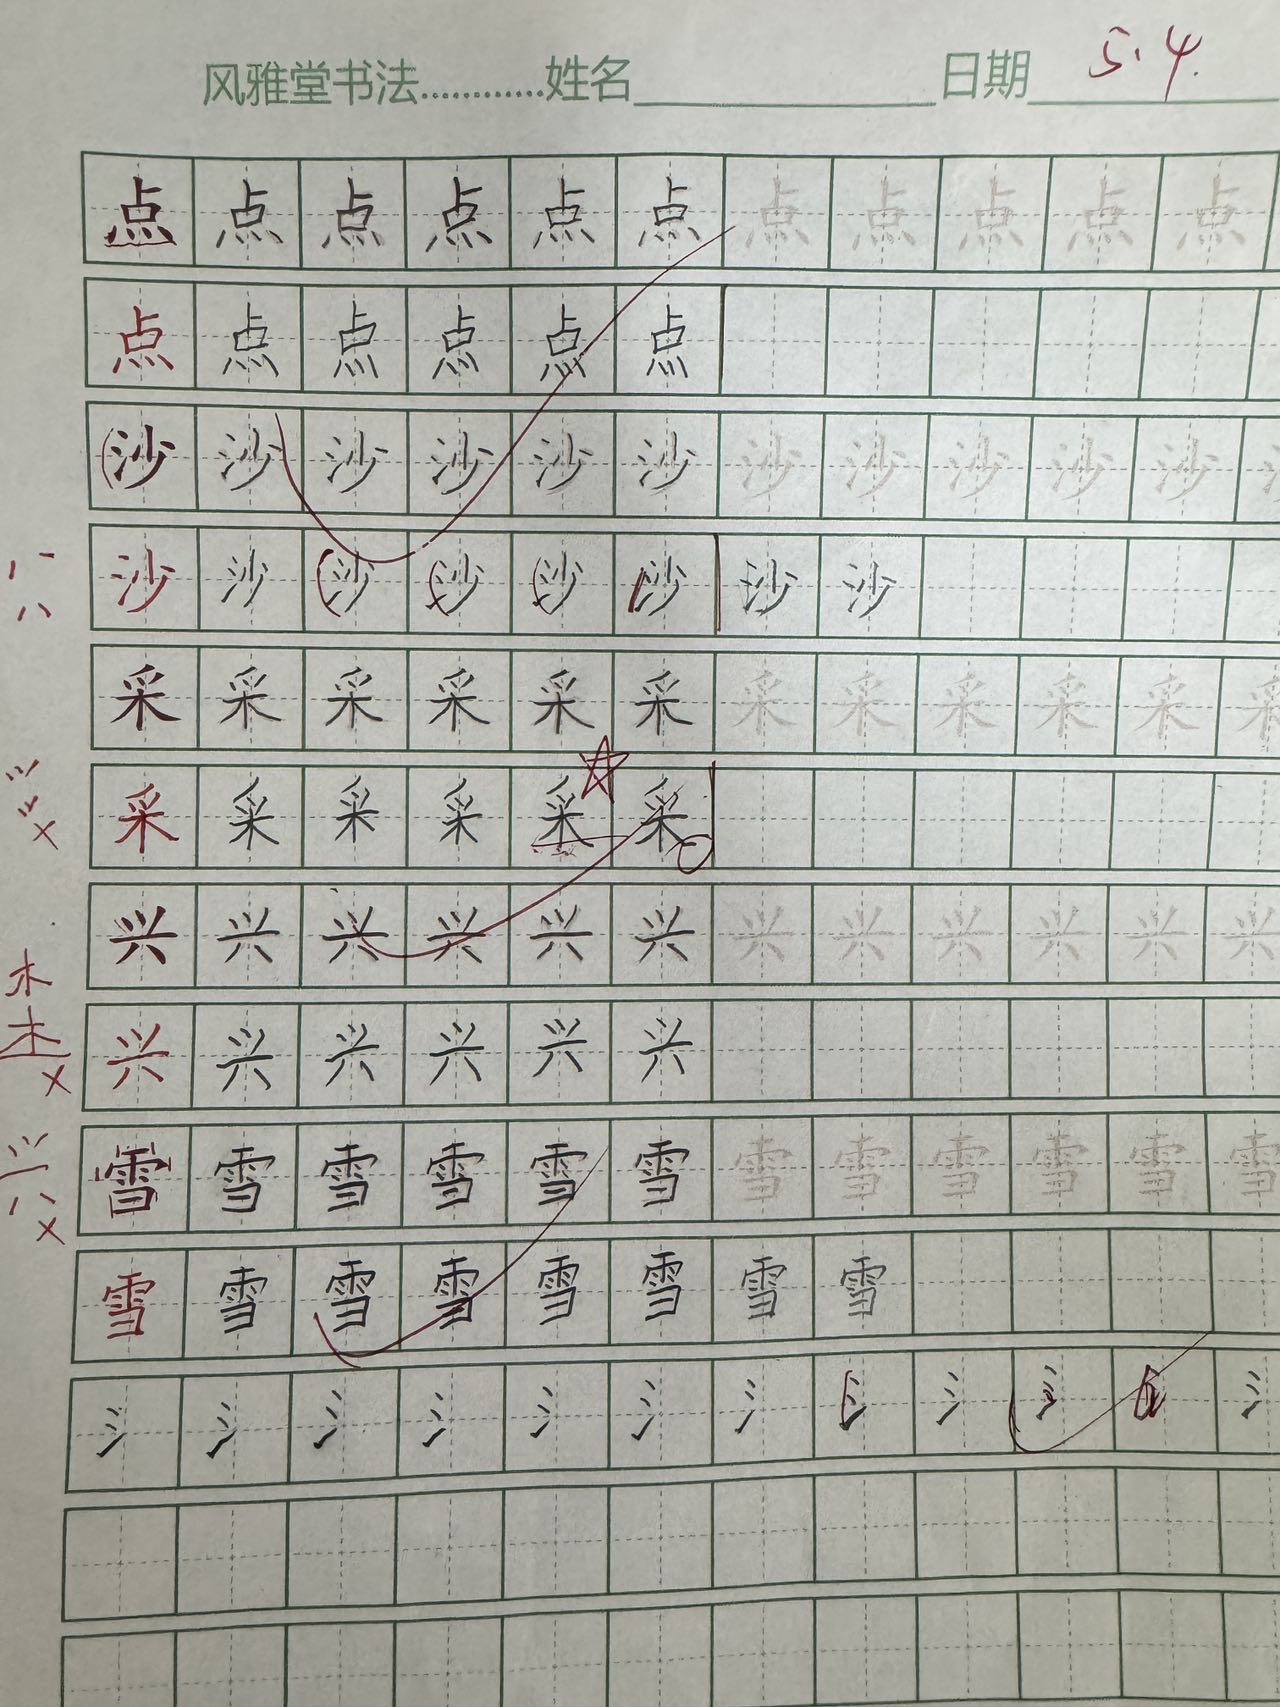 风雅堂书法............姓名 日期 5.4.
点 点 点 点 点 点 点 点 点 点 点
点 点 点 点 点 点
沙 沙 沙 沙 沙 沙 沙 沙 沙 沙 沙 沙
沙 沙 沙 沙 沙 沙 沙 沙
采 采 采 采 采 采 采 采 采 采 采 采
采 采 采 采 采 采
兴 兴 兴 兴 兴 兴 兴 兴 兴 兴 兴 兴
兴 兴 兴 兴 兴 兴
雪 雪 雪 雪 雪 雪 雪 雪 雪 雪 雪 雪
雪 雪 雪 雪 雪 雪 雪 雪
氵 氵 氵 氵 氵 氵 氵 氵 氵 氵 氵